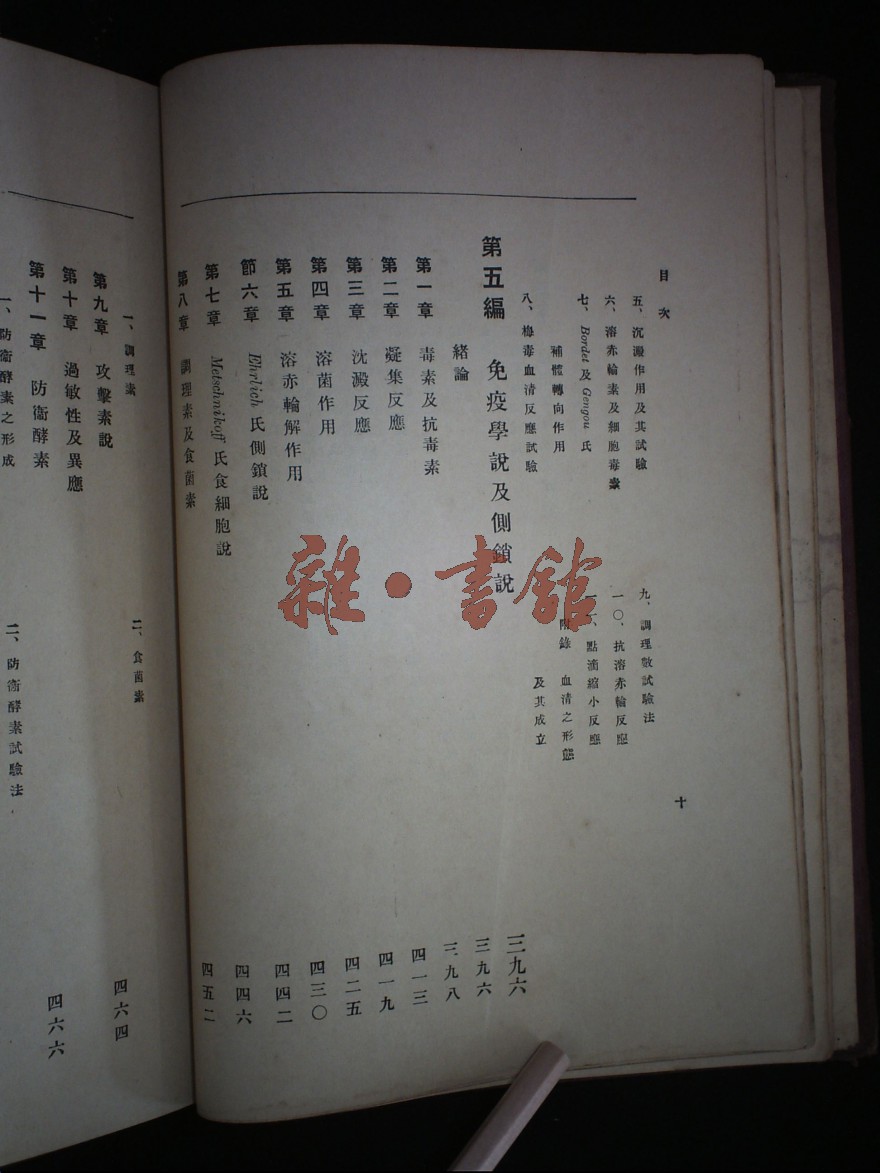 目次
五、沉澱作用及其試驗
六、溶赤輪素及細胞毒素
七、Bordet及Gengou氏
補體轉向作用
八、梅毒血清反應試驗
九、調理數試驗法
一〇、抗溶赤輪反應
一一、點滴縮小反應
附錄 血清之形態
及其成立
十
第五編 免疫學說及側鎖說 三九六
緒論 三九六
第一章 毒素及抗毒素 三九八
第二章 凝集反應 四一三
第三章 沈澱反應 四一九
第四章 溶菌作用 四二五
第五章 溶赤輪解作用 四三〇
節六章 Ehrlich氏側鎖說 四四二
第七章 Metschnikoff氏食細胞說 四四六
第八章 調理素及食菌素 四五二
一、調理素 二、食菌素
第九章 攻擊素說 四六四
第十章 過敏性及異應
第十一章 防衞酵素 四六六
一、防衞酵素之形成 二、防衞酵素試驗法
雜·書館